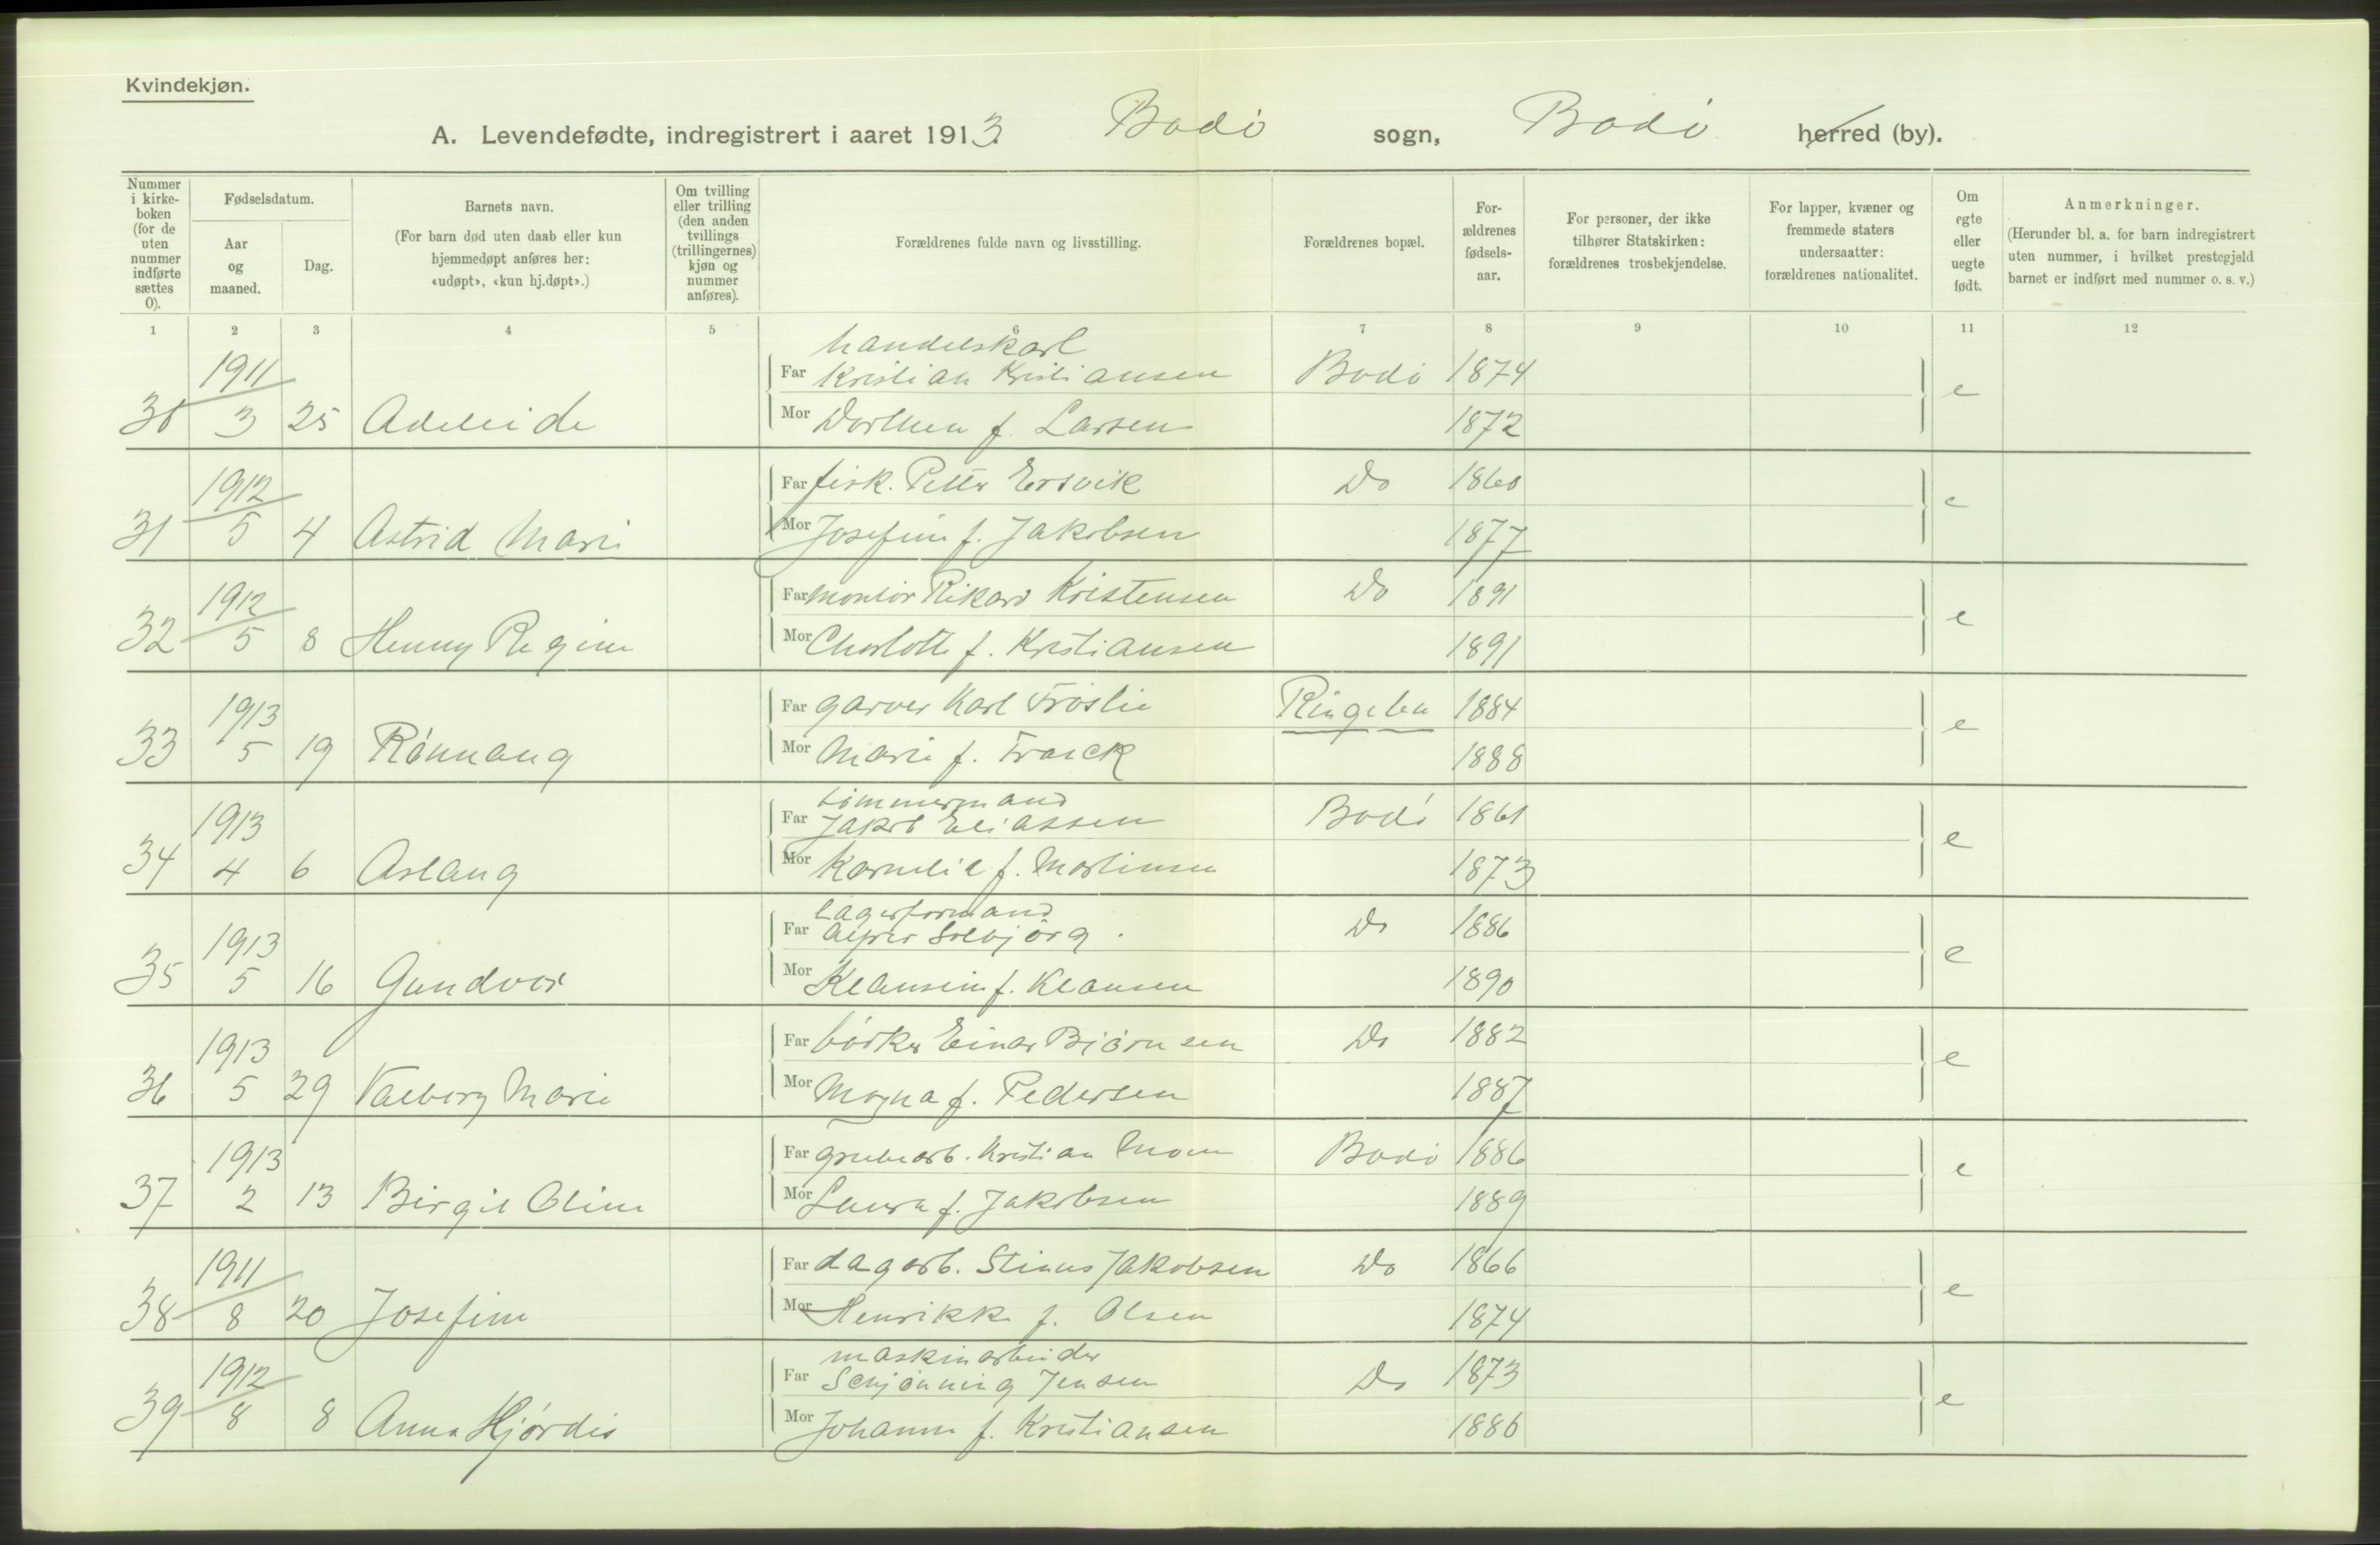 Kvindekjøn.
A. Levendefødte, indregistrert i aaret 1913. Bodø sogn, Bodø herred (by).
Nummer i kirke-boken (for de uten nummer indførte sættes 0).
Fødselsdatum.
Aar og maaned.
Dag.
Barnets navn.
(For barn død uten daab eller kun hjemmedøpt anføres her: «udøpt», «kun hj.døpt».)
Om tvilling eller trilling (den anden tvillings (trillingernes) kjøn og nummer anføres).
Forældrenes fulde navn og livsstilling.
Forældrenes bopæl.
For-ældrenes fødsels-aar.
For personer, der ikke tilhører Statskirken: forældrenes trosbekjendelse.
For lapper, kvæner og fremmede staters undersaatter: forældrenes nationalitet.
Om egte eller uegte født.
Anmerkninger.
(Herunder bl. a. for barn indregistrert uten nummer, i hvilket prestegjeld barnet er indført med nummer o. s. v.)
1 2 3 4 5 6 7 8 9 10 11 12
handelskarl
1911 Far Kristian Kristiansen Bodø 1874 e
30 3 25 Adeleide Mor Dorthea f. Larsen 1872
1912 Far fisk. Petter Ersvik Do 1860 e
31 5 4 Astrid Marie Mor Josefine f. Jakobsen 1877
1912 Far montør Rikard Kristensen Do 1891 e
32 5 8 Henny Regine Mor Charlotte f. Kristiansen 1891
1913 Far garver Karl Frøslie Ringebu 1884 e
33 5 19 Rønnaug Mor Marie f. Franck 1888
tømmermand
1913 Far Jakob Eliassen Bodø 1861 e
34 4 6 Aslaug Mor Kornelie f. Martinsen 1873
lagerformand
1913 Far Alfred Solbjørg Do 1886 e
35 5 16 Gundvor Mor Klausine f. Klausen 1890
1913 Far bødker Einar Bjørnsen Do 1882 e
36 5 29 Valborg Marie Mor Magna f. Pedersen 1887
1913 Far grubearb. Kristian Moen Bodø 1886 e
37 2 13 Birgit Oline Mor Laura f. Jakobsen 1889
1911 Far dagarb. Stinus Jakobsen Do 1866 e
38 8 20 Josefine Mor Henrikke f. Olsen 1874
maskinarbeider
1912 Far Schjønning Jensen Do 1873 e
39 8 8 Anna Hjørdis Mor Johanne f. Kristiansen 1886